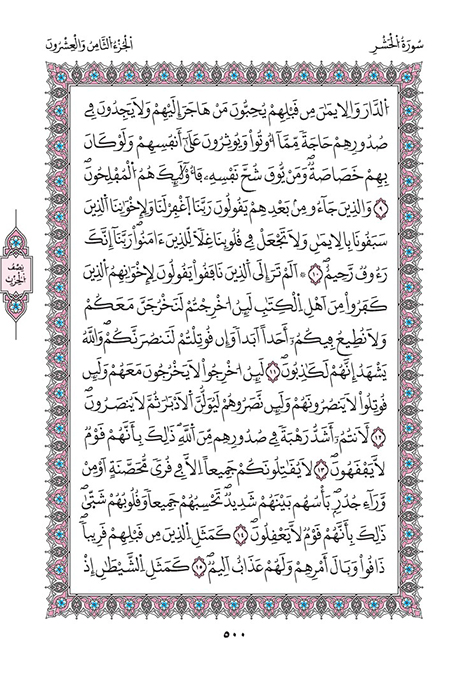 سُورَةُ الْحَشْرِ
الْجُزْءُ الثَّامِنُ وَالْعِشْرُونَ
اَ۬لدَّارَ وَالِايمَٰنَ مِن قَبْلِهِمْ يُحِبُّونَ مَنْ هَاجَرَ إِلَيْهِمْ وَلَا يَجِدُونَ فِے
صُدُورِهِمْ حَاجَةٗ مِّمَّآ أُوتُواْ وَيُوثِرُونَ عَلَيٰٓ أَنفُسِهِمْ وَلَوْ كَانَ
بِهِمْ خَصَاصَةٞۖ وَمَنْ يُّوقَ شُحَّ نَفْسِهِۦ فَأُوْلَٰٓئِكَ هُمُ اُ۬لْمُفْلِحُونَۖ
٩ وَالذِينَ جَآءُو مِنۢ بَعْدِهِمْ يَقُولُونَ رَبَّنَا اَ۪غْفِرْ لَنَا وَلِإِخْوَٰنِنَا اَ۬لذِينَ
سَبَقُونَا بِالِايمَٰنِ وَلَا تَجْعَلْ فِے قُلُوبِنَا غِلّاٗ لِّلذِينَ ءَامَنُواْۖ رَبَّنَآ إِنَّكَ
رَءُوفٞ رَّحِيمٌۖ ١٠ ۞ اَلَمْ تَرَ إِلَي اَ۬لذِينَ نَافَقُواْ يَقُولُونَ لِإِخْوَٰنِهِمُ اُ۬لذِينَ
كَفَرُواْ مِنَ اَهْلِ اِ۬لْكِتَٰبِ لَئِنُ ا۟خْرِجْتُمْ لَنَخْرُجَنَّ مَعَكُمْ
وَلَا نُطِيعُ فِيكُمُۥٓ أَحَداً اَبَداٗ وَإِن قُوتِلْتُمْ لَنَنصُرَنَّكُمْۖ وَاللَّهُ
يَشْهَدُ إِنَّهُمْ لَكَٰذِبُونَۖ ١١ لَئِنُ ا۟خْرِجُواْ لَا يَخْرُجُونَ مَعَهُمْ وَلَئِن
قُوتِلُواْ لَا يَنصُرُونَهُمْ وَلَئِن نَّصَرُوهُمْ لَيُوَلُّنَّ اَ۬لَادْبَٰرَ ثُمَّ لَا يُنصَرُونَۖ
١٢ لَأَنتُمُۥٓ أَشَدُّ رَهْبَةٗ فِے صُدُورِهِم مِّنَ اَ۬للَّهِۖ ذَٰلِكَ بِأَنَّهُمْ قَوْمٞ
لَّا يَفْقَهُونَۖ ١٣ لَا يُقَٰتِلُونَكُمْ جَمِيعاً اِلَّا فِے قُريٗ مُّحَصَّنَةٍ اَوْ مِنْ
وَّرَآءِ جُدُرِۢۖ بَأْسُهُم بَيْنَهُمْ شَدِيدٞۖ تَحْسِبُهُمْ جَمِيعاٗ وَقُلُوبُهُمْ شَتّ۪يٰۖ
ذَٰلِكَ بِأَنَّهُمْ قَوْمٞ لَّا يَعْقِلُونَۖ ١٤ كَمَثَلِ اِ۬لذِينَ مِن قَبْلِهِمْ قَرِيباٗۖ
ذَاقُواْ وَبَالَ أَمْرِهِمْ وَلَهُمْ عَذَابٌ اَلِيمٞۖ ١٥ كَمَثَلِ اِ۬لشَّيْطَٰنِ إِذْ
نِصْفُ
الْحِزْبِ
٥٠٠